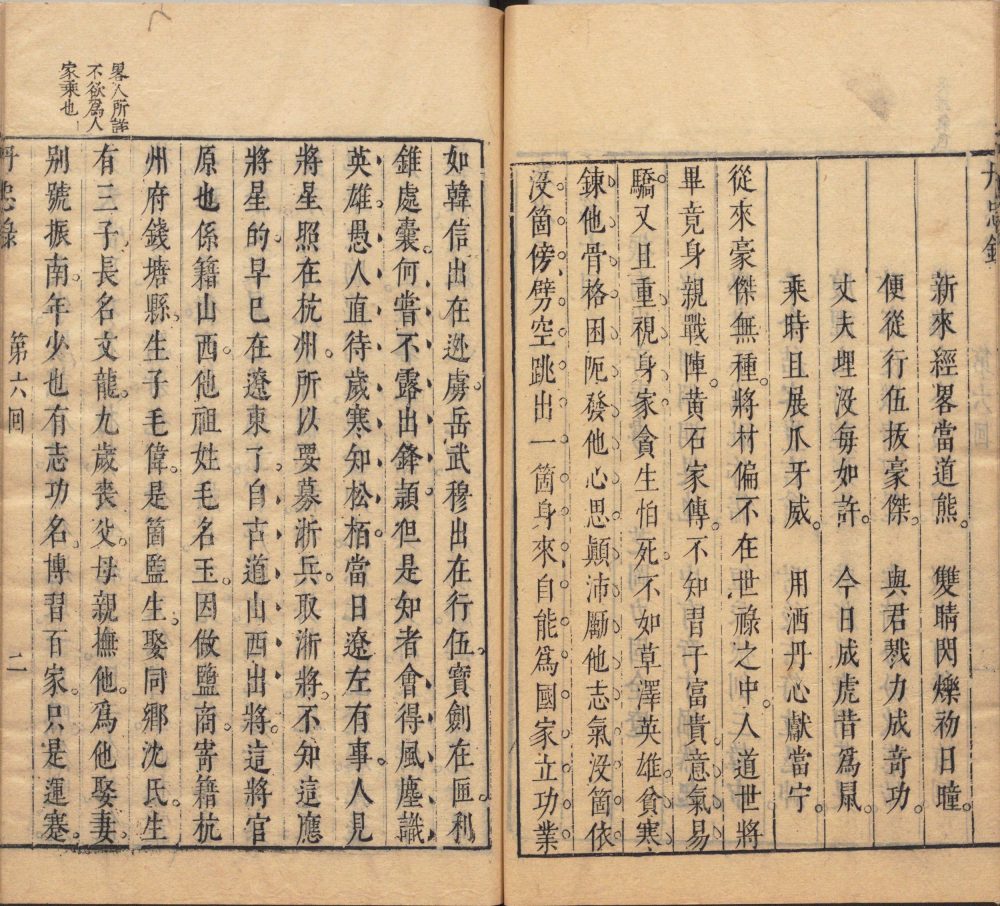 新來經畧當道熊。　雙睛閃爍初日曈。
便從行伍拔豪傑。　與君戮力成竒功。
丈夫埋沒每如許。　今日成虎昔爲鼠。
乘時且展爪牙威。　用洒丹心獻當宁。
從來豪傑無種。將材偏不在世祿之中。人道世將
畢竟身親戰陣。黄石家傳。不知習于富貴。意氣易
驕。又且重視身家。貪生怕死。不如草澤英雄。貧寒
鍊他骨格。困阨發他心思。顛沛勵他志氣。沒箇依
沒箇傍。劈空跳出一箇身來。自能爲國家立功業
畧人所詳
不欲爲人
家乘也
如韓信出在逃虜。岳武穆出在行伍。寳劍在匣。利
錐處囊。何嘗不露出鋒頴。但是知者會得風塵識
英雄。愚人直待歲寒知松栢。當日遼左有事。人見
將星照在杭州。所以要募浙兵。取浙將。不知這應
將星的。早已在遼東了。自古道山西出將。這將官
原也係籍山西。他祖姓毛名玉。因做鹽商。寄籍杭
州府錢塘縣。生子毛偉。是箇監生。娶同鄉沈氏。生
有三子。長名文龍。九歲喪父。母親撫他。爲他娶妻。
别號振南。年少也有志功名。博習百家。只是運蹇。
丹忠錄
第六回
二